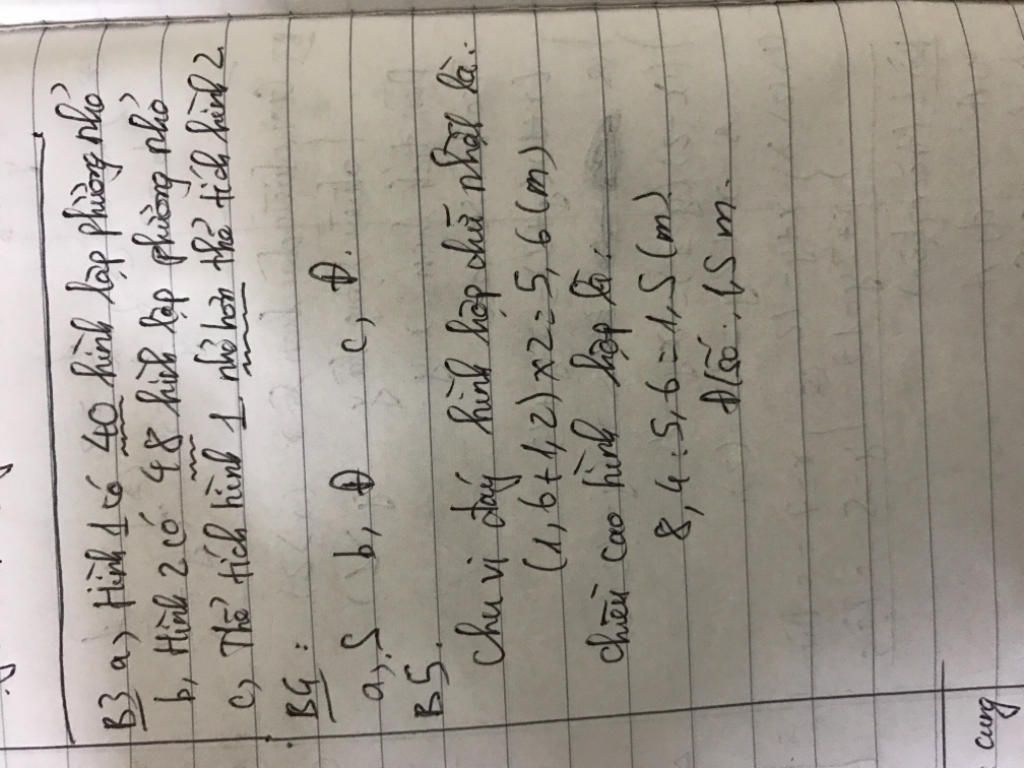 B3 a, Hình 1 có 40 hình lập phương nhỏ
b, Hình 2 có 48 hình lập phương nhỏ
c, Thể tích hình 1 nhỏ hơn thể tích hình 2
B4:
a, S b, Đ c, Đ.
B5.
Chu vi đáy hình hộp chữ nhật là.
(1,6+1,2)x2=5,6(m)
Chiều cao hình hộp là.
8,4:5,6=1,5(m)
Đ/số: 1,5 m.
cung